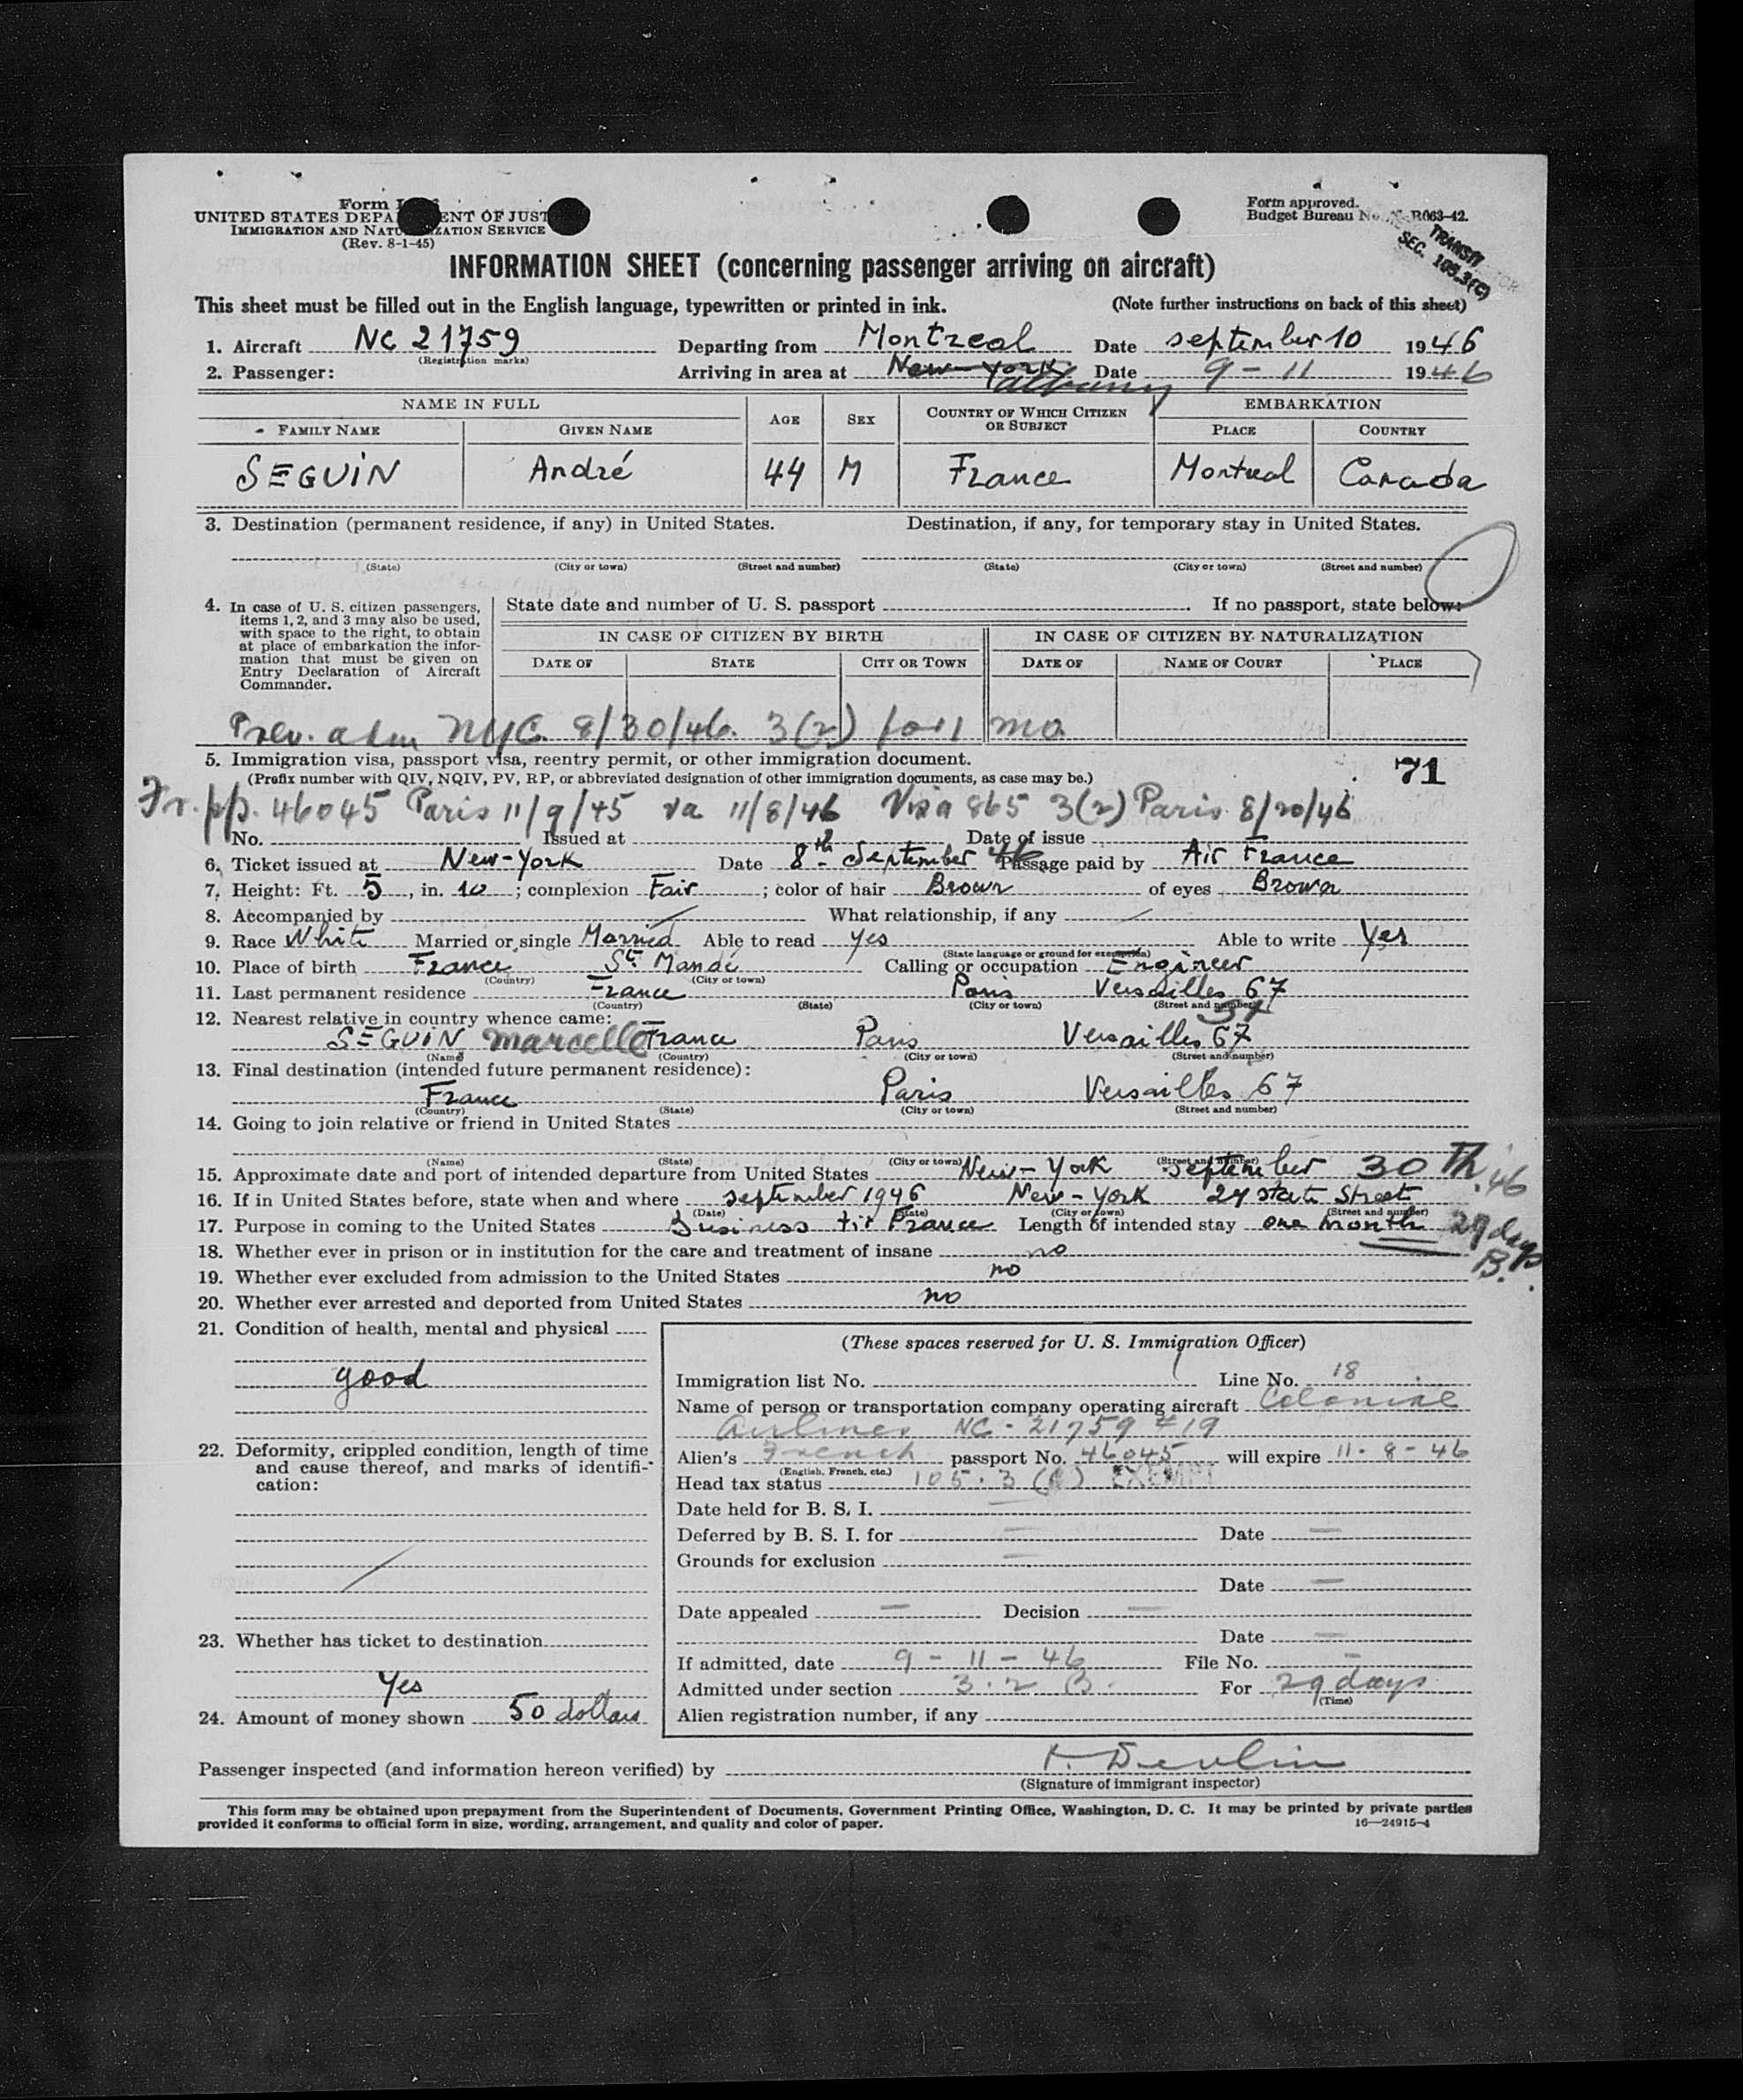 Form I
UNITED STATES DEPA ENT OF JUST
IMMIGRATION AND NATU ZATION SERVICE
(Rev. 8-1-45)
Form approved.
Budget Bureau No. R063-42.
TRANSIT
SEC. 105.3(C)
INFORMATION SHEET (concerning passenger arriving on aircraft)
This sheet must be filled out in the English language, typewritten or printed in ink. (Note further instructions on back of this sheet)
1. Aircraft NC 21759 Departing from Montreal Date september 10 1946
(Registration marks)
2. Passenger: Arriving in area at New-York Albany Date 9-11 1946
NAME IN FULL AGE SEX COUNTRY OF WHICH CITIZEN OR SUBJECT EMBARKATION
- FAMILY NAME GIVEN NAME PLACE COUNTRY
SEGUIN André 44 M France Montreal Canada
3. Destination (permanent residence, if any) in United States. Destination, if any, for temporary stay in United States.
(State) (City or town) (Street and number) (State) (City or town) (Street and number)
4. In case of U. S. citizen passengers, items 1, 2, and 3 may also be used, with space to the right, to obtain at place of embarkation the information that must be given on Entry Declaration of Aircraft Commander.
State date and number of U. S. passport . If no passport, state below:
IN CASE OF CITIZEN BY BIRTH IN CASE OF CITIZEN BY NATURALIZATION
DATE OF STATE CITY OR TOWN DATE OF NAME OF COURT PLACE
Prev. adm NYC 8/30/46. 3(2) for 1 mo
5. Immigration visa, passport visa, reentry permit, or other immigration document. 71
(Prefix number with QIV, NQIV, PV, RP, or abbreviated designation of other immigration documents, as case may be.)
Fr. pp. 46045 Paris 11/9/45 va 11/8/46 Visa 865 3(2) Paris 8/20/46
No. Issued at Date of issue
6. Ticket issued at New-York Date 8th September 46 Passage paid by Air France
7. Height: Ft. 5, in. 10; complexion Fair; color of hair Brown of eyes Brown
8. Accompanied by What relationship, if any
9. Race White Married or single Married Able to read yes Able to write Yes
(State language or ground for exemption)
10. Place of birth France St Mandé Calling or occupation Engineer
(Country) (City or town)
11. Last permanent residence France Paris Versailles 67
(Country) (State) (City or town) (Street and number)
12. Nearest relative in country whence came: 37
SEGUIN Marcelle France Paris Versailles 67
(Name) (Country) (City or town) (Street and number)
13. Final destination (intended future permanent residence):
France Paris Versailles 67
(Country) (State) (City or town) (Street and number)
14. Going to join relative or friend in United States
(Name) (State) (City or town) (Street and number)
15. Approximate date and port of intended departure from United States New-York september 30th. 46
16. If in United States before, state when and where september 1946 New-York 24 state Street
(Date) (State) (City or town) (Street and number)
17. Purpose in coming to the United States Business Air France Length of intended stay one month 29 days
B.P.
18. Whether ever in prison or in institution for the care and treatment of insane no
19. Whether ever excluded from admission to the United States no
20. Whether ever arrested and deported from United States no
21. Condition of health, mental and physical
good
22. Deformity, crippled condition, length of time and cause thereof, and marks of identification:
23. Whether has ticket to destination
Yes
24. Amount of money shown 50 dollars
(These spaces reserved for U. S. Immigration Officer)
Immigration list No. Line No. 18
Name of person or transportation company operating aircraft Colonial
Airlines NC-21759 #19
Alien's French passport No. 46045 will expire 11-8-46
(English, French, etc.)
Head tax status 105.3(c) EXEMPT
Date held for B. S. I.
Deferred by B. S. I. for — Date —
Grounds for exclusion —
Date —
Date appealed — Decision —
Date —
If admitted, date 9-11-46 File No. —
Admitted under section 3.2 B. For 29 days
(Time)
Alien registration number, if any
Passenger inspected (and information hereon verified) by T. Devlin
(Signature of immigrant inspector)
This form may be obtained upon prepayment from the Superintendent of Documents, Government Printing Office, Washington, D. C. It may be printed by private parties
provided it conforms to official form in size, wording, arrangement, and quality and color of paper. 16—24915-4